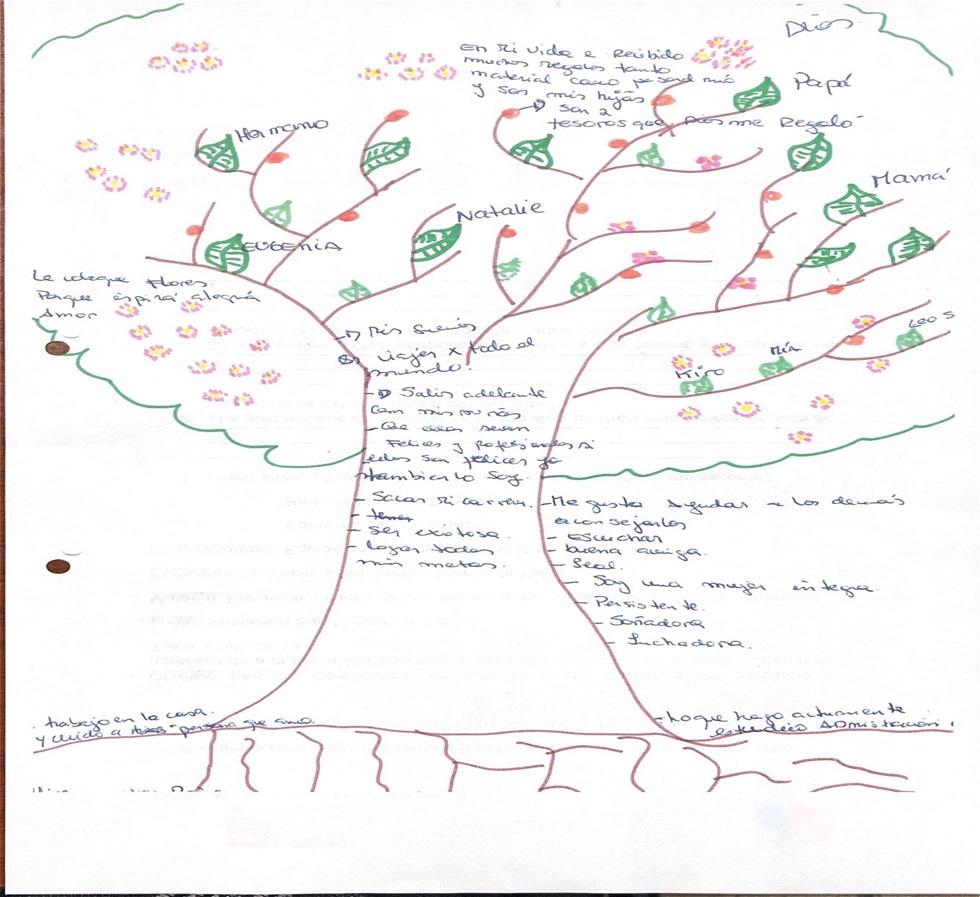 Dios
En mi vida e Recibido
muchos regalos tanto
material como personal mío
y son mis hijas
son 2
tesoros que Dios me Regaló
Papá
Hermano
Mamá
Natalie
EUGENIA
Le coloque Flores.
Porque ispirá alegriá
Amor
Leo S
Mía
Kiro
Mis Sueños
viajes x todo el
mundo.
- Salir adelante
con mis
- Que ellas sean
Felices y profesionales si
ellas son felices yo
tambien lo soy.
- Sacar mi carrera.
- tener
- Ser exitosa.
- lograr todas
mis metas.
- Me gusta Ayudar a los demás
aconsejarlos
- Escuchar
- buena amiga.
- Leal.
- Soy una mujer integra.
- Persistente.
- Soñadora
- Luchadora.
. trabajo en la casa.
y cuido a persona que amo.
- lo que hago actualmente
estudio ADmistración.